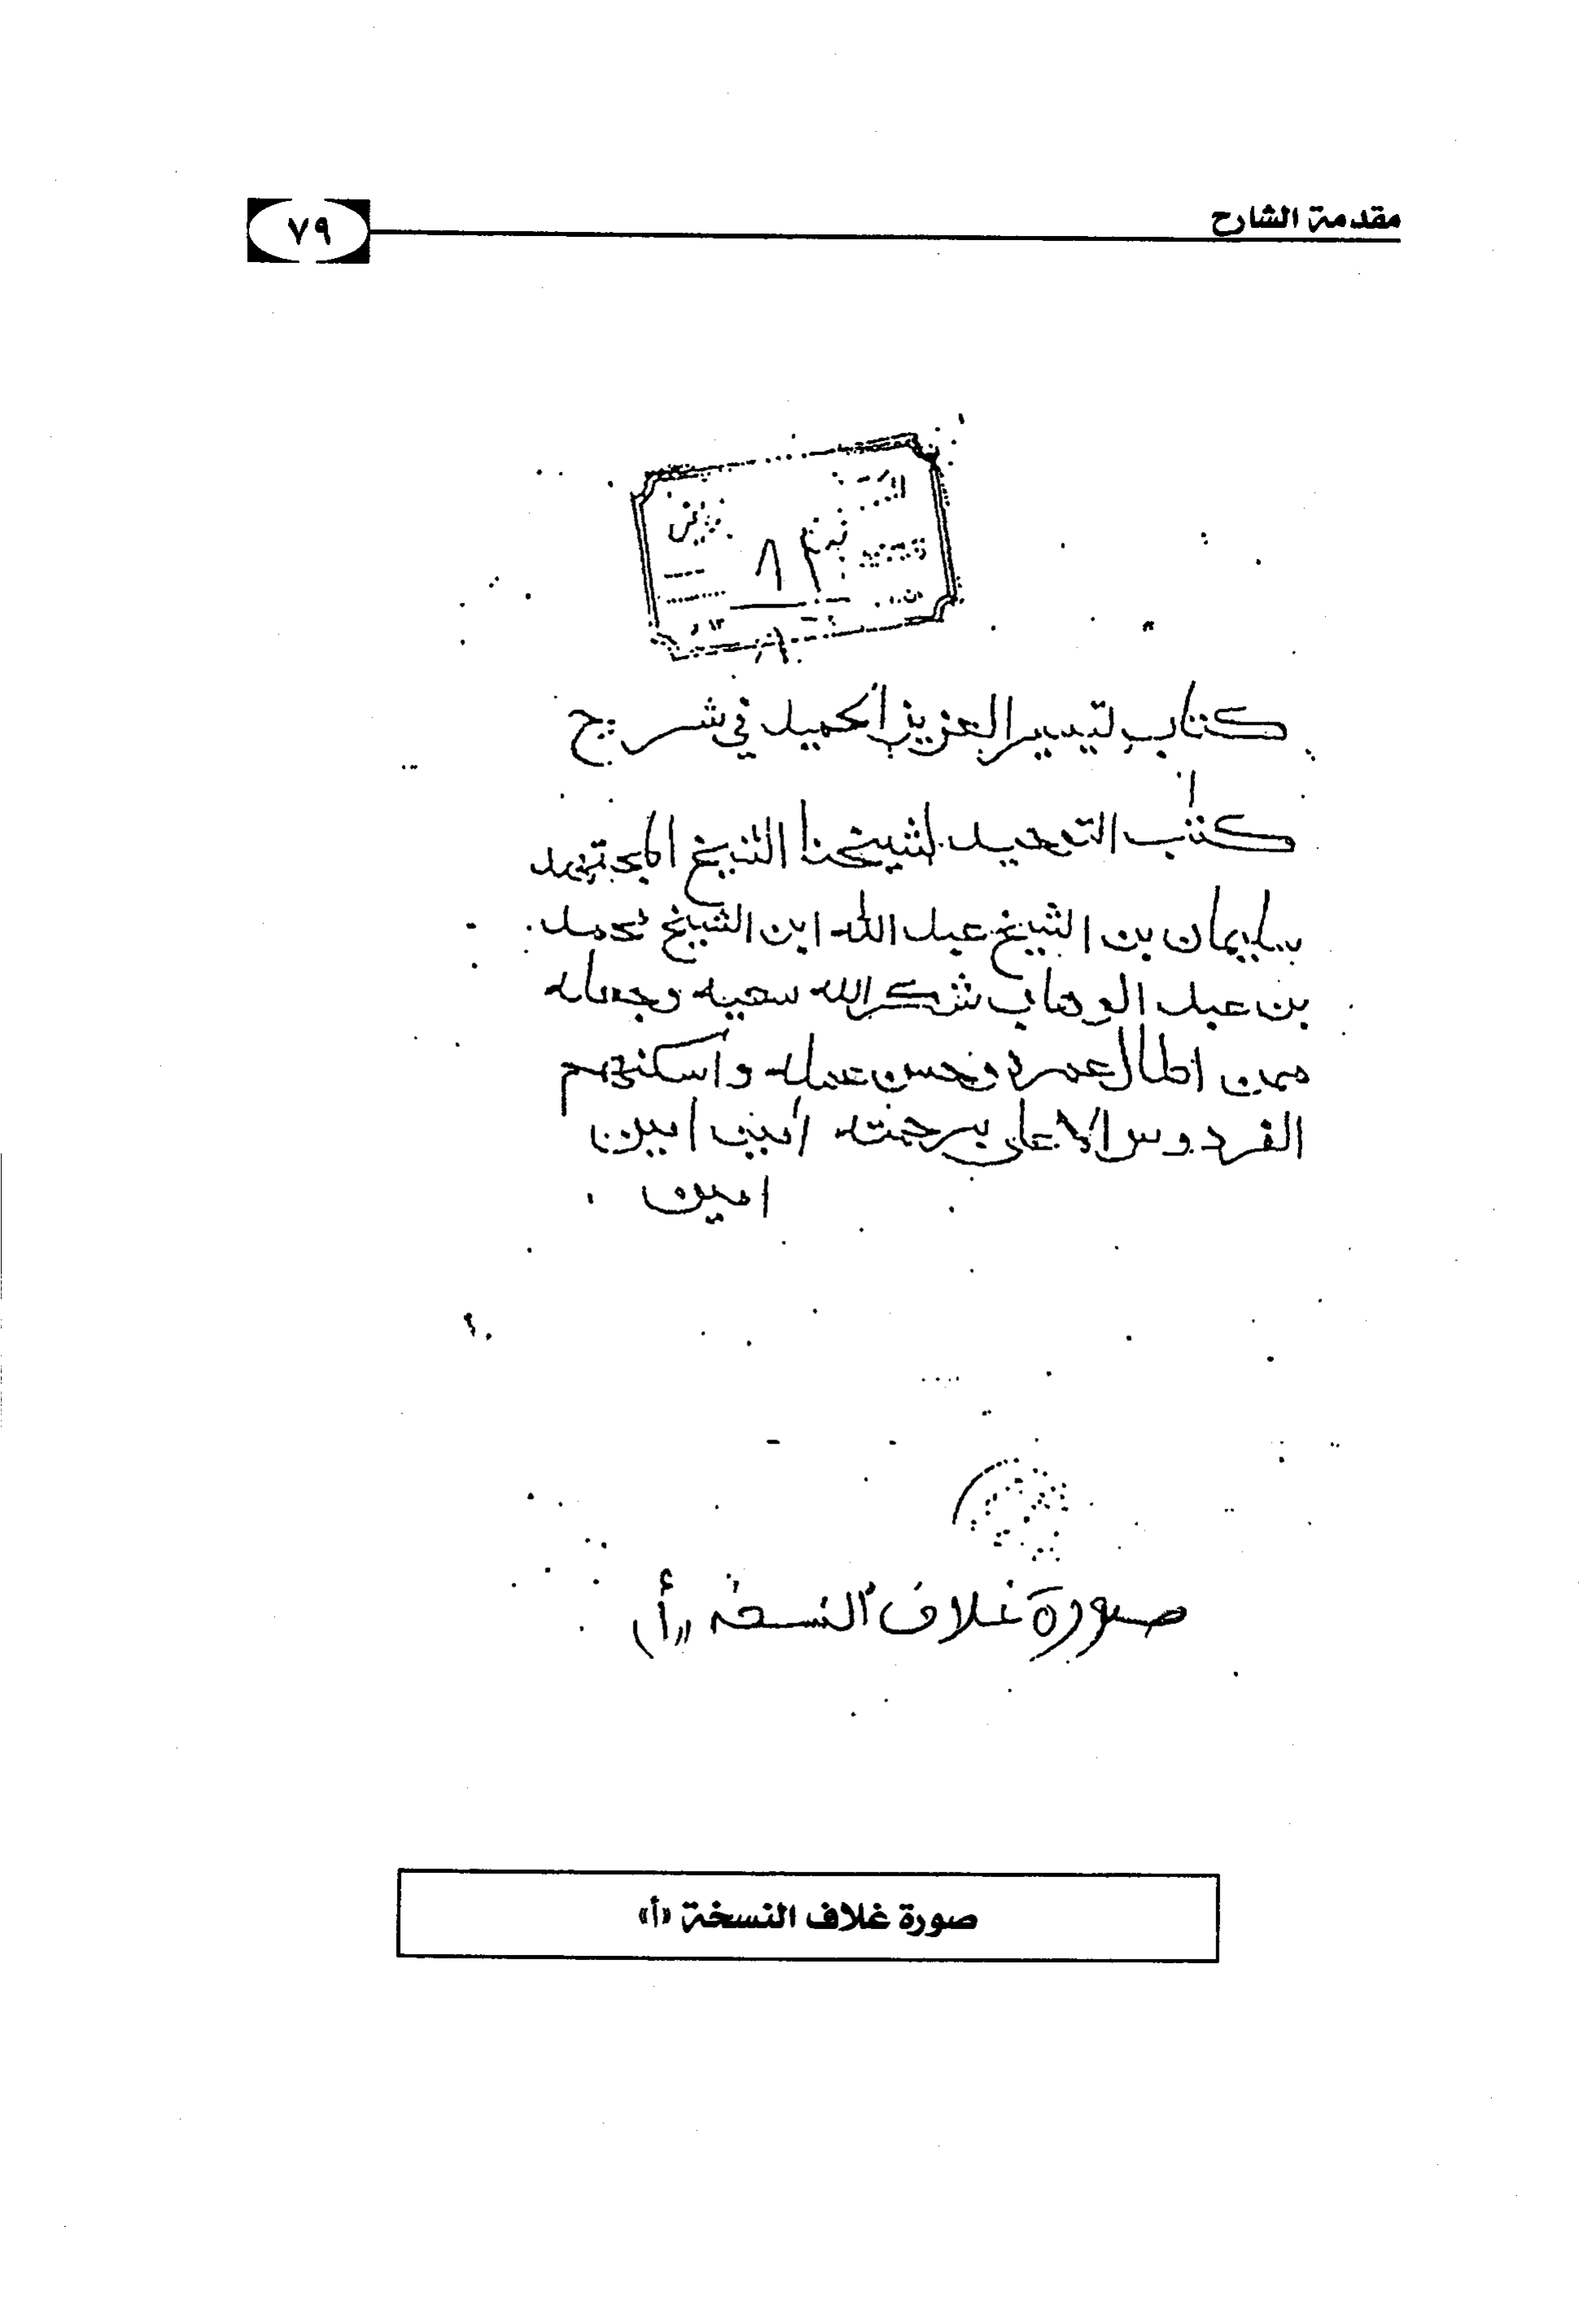 مقدمة الشارح
٧٩
كتاب تيسير العزيز الحميد في شرح
كتاب التوحيد لشيخنا الشيخ المجتهد
سليمان بن الشيخ عبد الله ابن الشيخ محمد
بن عبد الوهاب شكر الله سعيه وجعله
ممن اطال عمره وحسن عمله واسكنهم
الفردوس الاعلى برحمته امين امين
امين
صورة غلاف النسخة «أ»
صورة غلاف النسخة «أ»